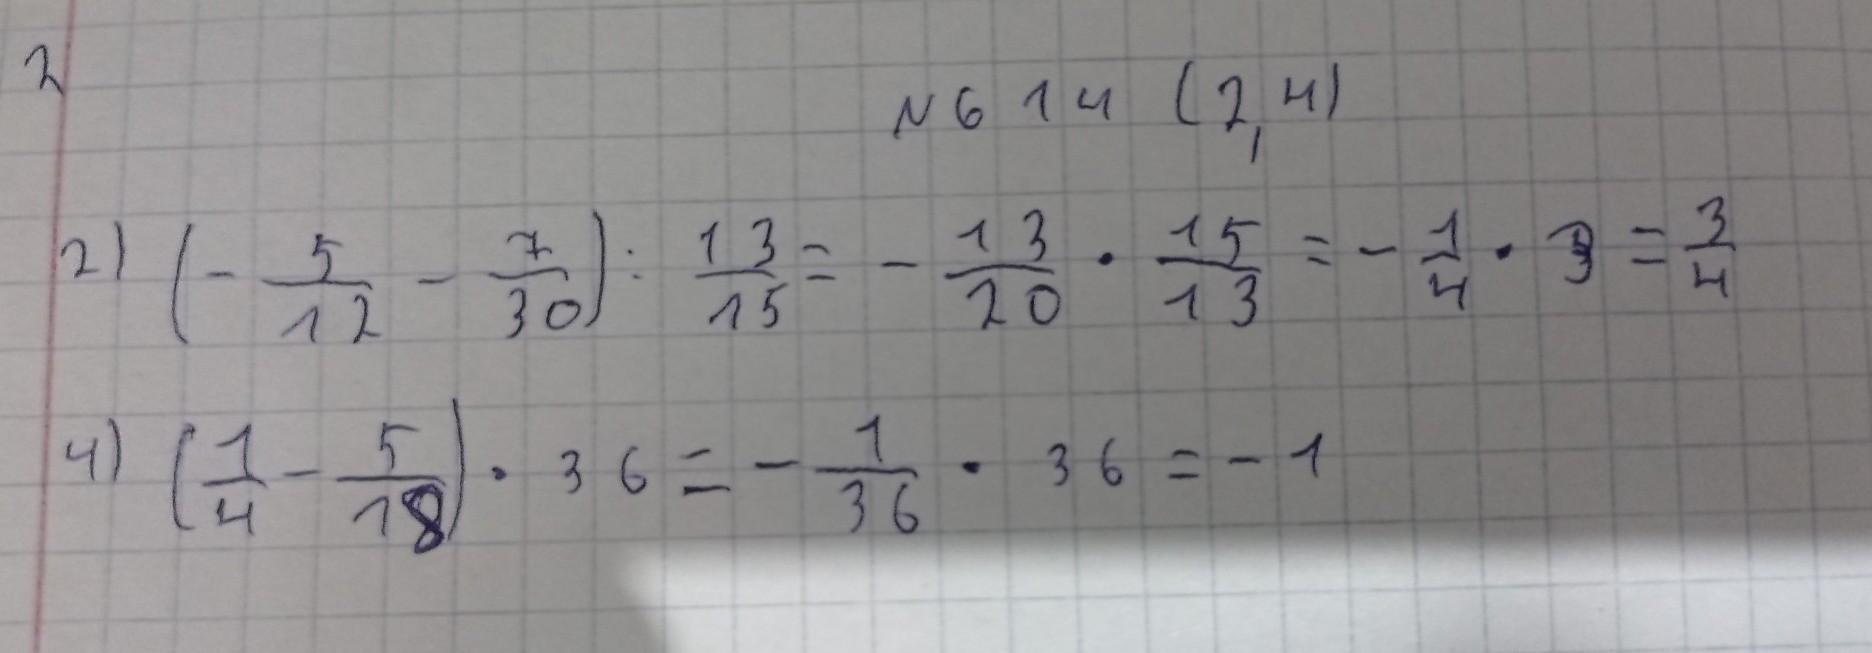 2
N 6 1 4 (2, 4)
2) (- 5/12 - 7/30) : 13/15 = - 13/20 · 15/13 = - 1/4 · 3 = 3/4
4) (1/4 - 5/18) · 36 = - 1/36 · 36 = - 1